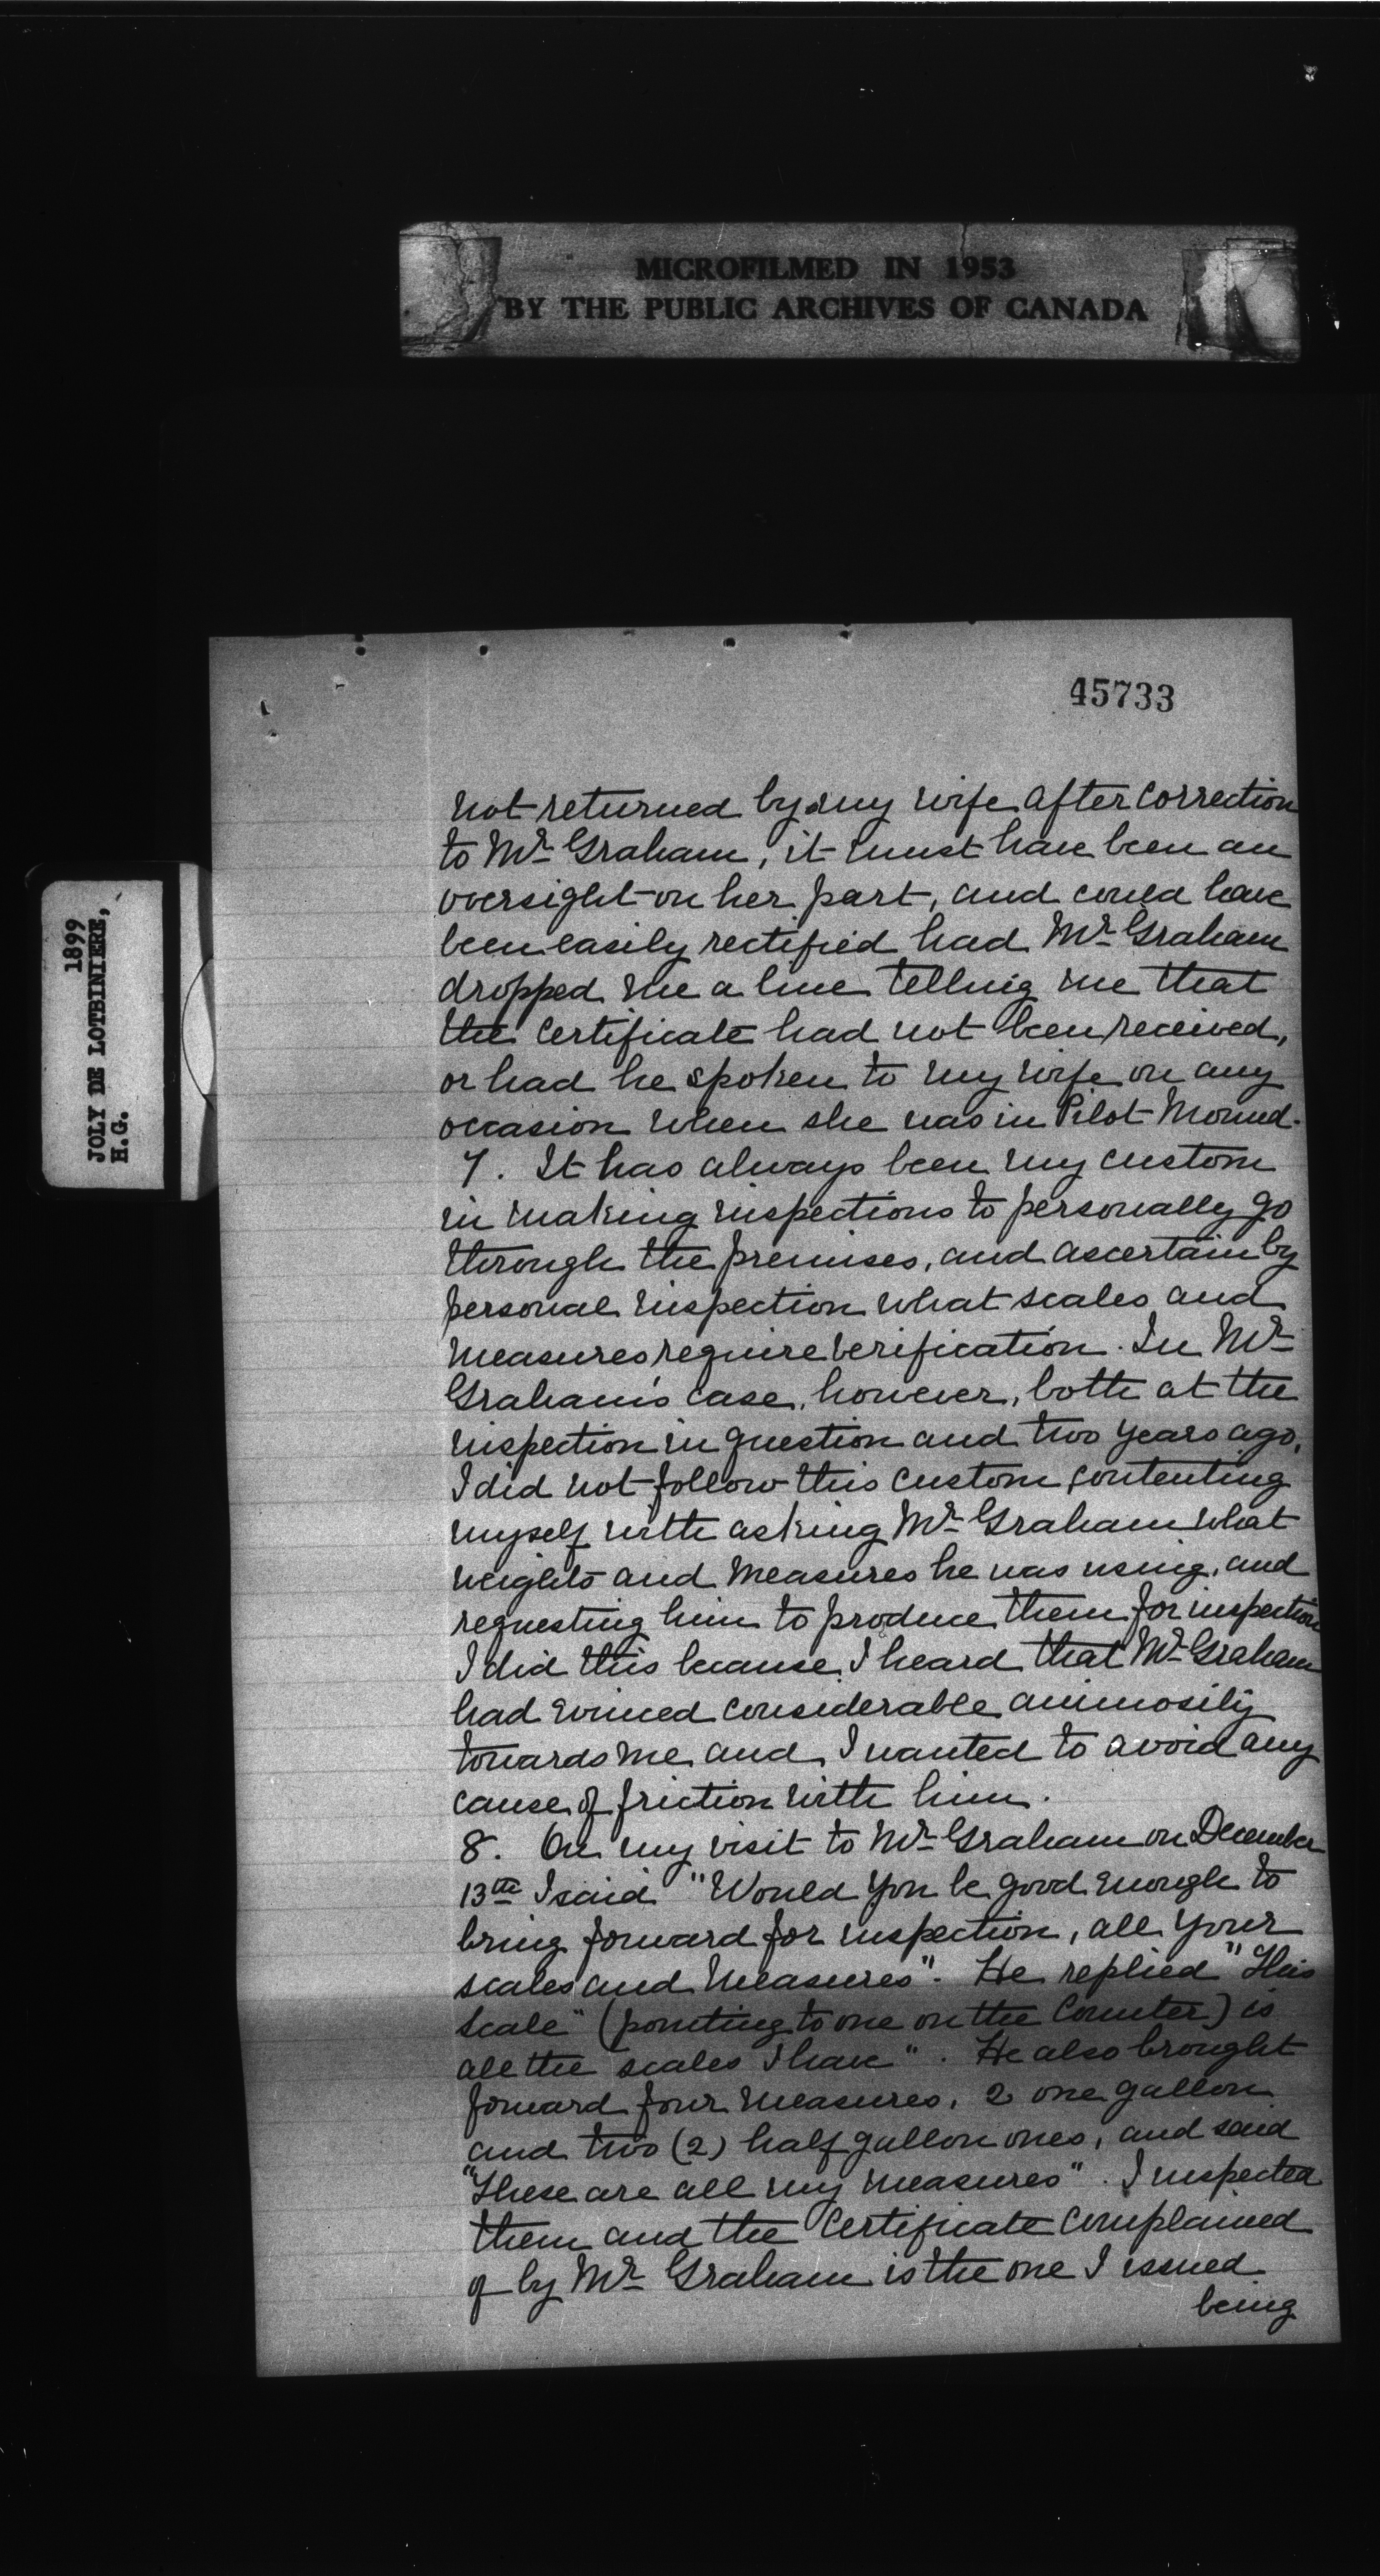 MICROFILMED IN 1953
BY THE PUBLIC ARCHIVES OF CANADA
1899
JOLY DE LOTBINIERE,
H.G.
45733
not returned by my wife after correction
to Mr Graham, it must have been an
oversight on her part, and could have
been easily rectified had Mr Graham
dropped me a line telling me that
the certificate had not been received,
or had he spoken to my wife on any
occasion when she was in Pilot Mound.
7. It has always been my custom
in making inspections to personally go
through the premises, and ascertain by
personal inspection what scales and
measures require verification. In Mr
Graham's case, however, both at the
inspection in question and two years ago,
I did not follow this custom, contenting
myself with asking Mr Graham what
weights and measures he was using, and
requesting him to produce them for inspection
I did this because I heard that Mr Graham
had evinced considerable animosity
towards me and I wanted to avoid any
cause of friction with him.
8. On my visit to Mr Graham on December
13th I said "Would you be good enough to
bring forward for inspection, all your
scales and measures". He replied "This
scale" (pointing to one on the counter) is
all the scales I have". He also brought
forward four measures, 2 one gallon
and two (2) half gallon ones, and said
"These are all my measures". I inspected
them and the certificate complained
of by Mr Graham is the one I issued
being